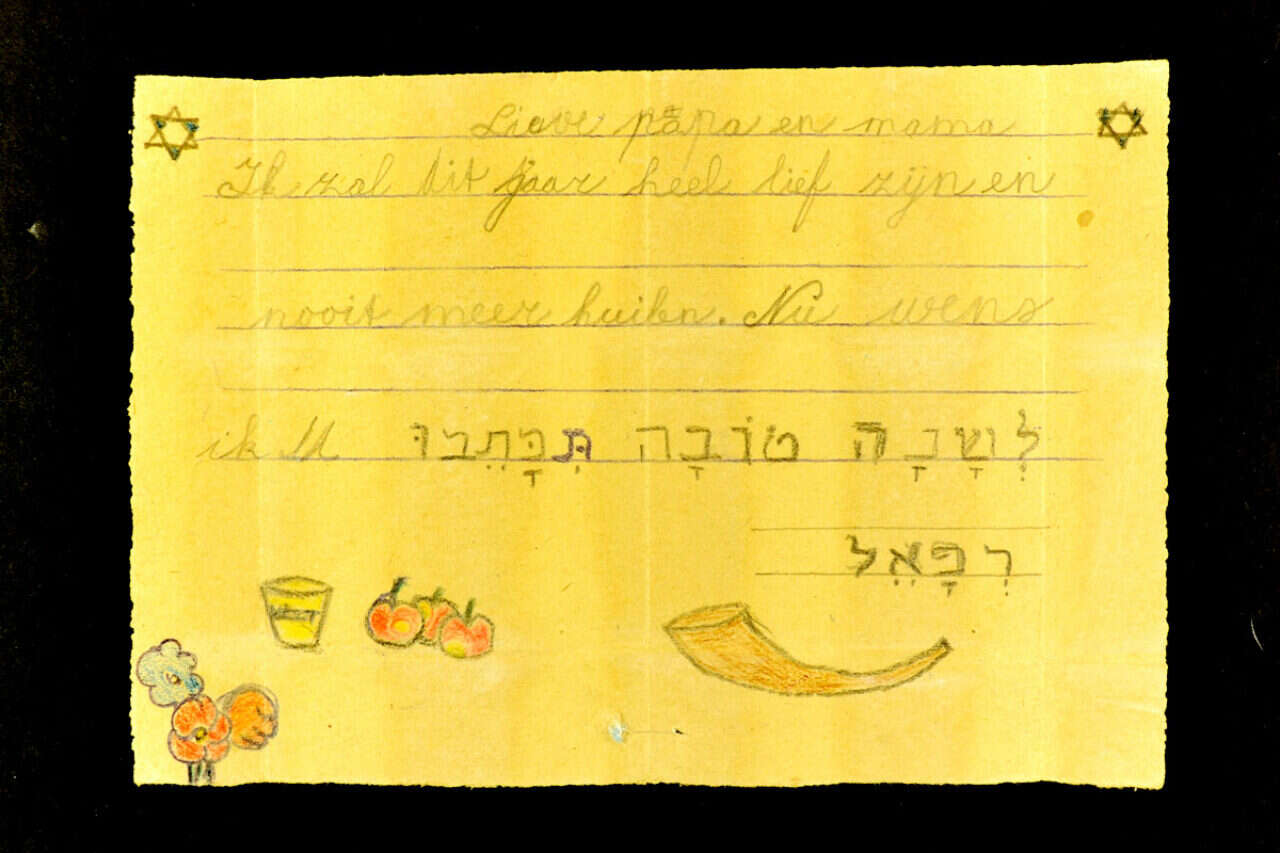 Lieve papa en mama
Ik zal dit jaar heel lief zijn en
nooit meer huilen. Nu wens
ik U לְשָׁנָה טוֹבָה תִּכָּתֵבוּ
רְפָאֵל